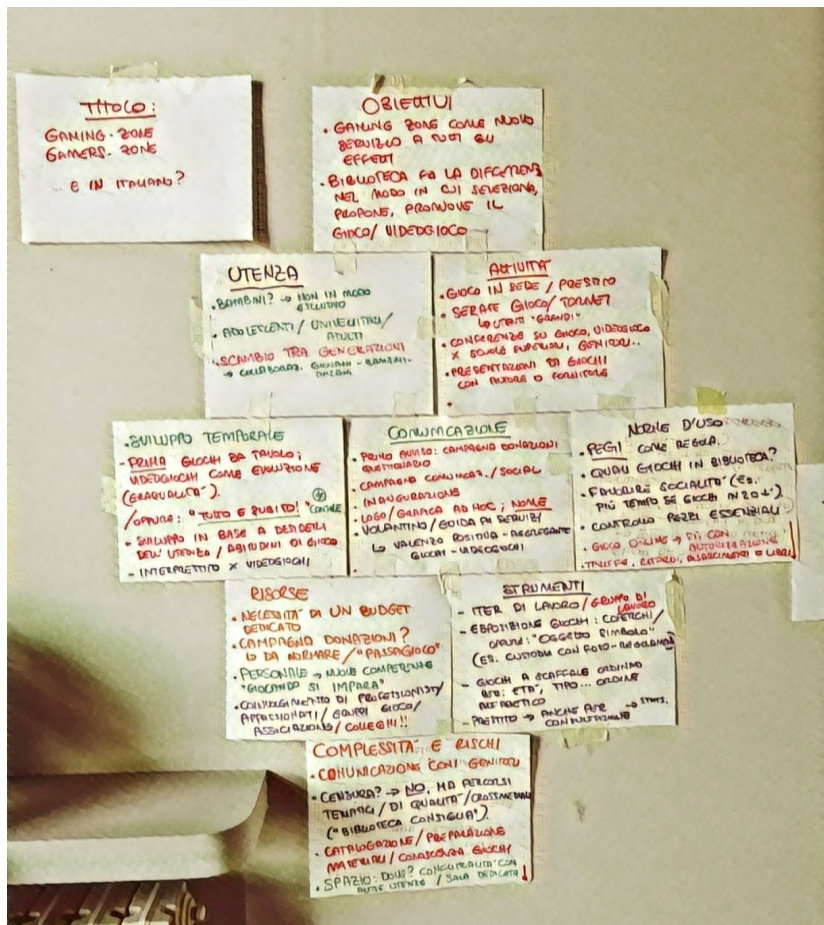 TITOLO:
GAMING ZONE
GAMERS ZONE
... E IN ITALIANO?
OBIETTIVI
• GAMING ZONE COME NUOVO
SERVIZIO A TUTTI GLI
EFFETTI
• BIBLIOTECA FA LA DIFFERENZ
NEL MODO IN CUI SELEZIONA,
PROPONE, PROMUOVE IL
GIOCO/VIDEOGIOCO
UTENZA
• BAMBINI? → NON IN MODO
ESCLUSIVO
• ADOLESCENTI / UNIVERSITARI /
ADULTI
• SCAMBIO TRA GENERAZIONI
→ COLLABORAZ. GIOVANI - BAMBINI -
ANZIANI
ATTIVITÀ
• GIOCO IN SEDE / PRESTITO
• SERATE GIOCO / TORNEI
↳ UTENTI "GRANDI"
• CONFERENZE SU GIOCO, VIDEOGIOCO
X SCUOLE SUPERIORI, GENITORI..
• PRESENTAZIONI DI GIOCHI
CON AUTORE O FORNITORE
•
• SVILUPPO TEMPORALE
- PRIMA GIOCHI DA TAVOLO;
VIDEOGIOCHI COME EVOLUZIONE
(GRADUALITÀ).
/OPPURE: "TUTTO E SUBITO!" + CONSOLE
- SVILUPPO IN BASE A DESIDERI
DELL'UTENZA / ABITUDINI DI GIOCO
- INTERPRESTITO X VIDEOGIOCHI
COMUNICAZIONE
• PRIMO AVVISO: CAMPAGNA DONAZIONI
QUESTIONARIO
• CAMPAGNA COMUNICAZ. / SOCIAL
• INAUGURAZIONE
• LOGO / GRAFICA AD HOC; NOME
• VOLANTINO / GUIDA AI SERVIZI
↳ VALENZA POSITIVA - AGGREGANTE
GIOCHI - VIDEOGIOCHI
NORME D'USO
• PEGI COME REGOLA.
• QUALI GIOCHI IN BIBLIOTECA?
• FAVORIRE SOCIALITÀ (ES.
PIÙ TEMPO SE GIOCHI IN 2 O +).
• CONTROLLO PEZZI ESSENZIALI
• GIOCO ONLINE → SÌ CON
AUTORIZZAZIONE
• TARIFFE, RITARDI, RISARCIMENTI = LIBRI!
RISORSE
• NECESSITÀ DI UN BUDGET
DEDICATO
• CAMPAGNA DONAZIONI?
↳ DA NORMARE / "PASSAGIOCO"
• PERSONALE → NUOVE COMPETENZE
"GIOCANDO SI IMPARA"
• COINVOLGIMENTO DI PROFESSIONISTI /
APPASSIONATI / GRUPPI GIOCO /
ASSOCIAZIONI / COLLEGHI!!
STRUMENTI
- ITER DI LAVORO / GRUPPO DI
LAVORO
- ESPOSIZIONE GIOCHI: COPERCHI /
OPPURE: "OGGETTO SIMBOLO"
(ES. CUSTODIA CON FOTO - REGOLAMENTO)
- GIOCHI A SCAFFALE ORDINATI
PER: ETÀ, TIPO... ORDINE
ALFABETICO
- PRESTITO → ANCHE PER → STATS.
CONSULTAZIONE
COMPLESSITÀ E RISCHI
• COMUNICAZIONE CON I GENITORI
• CENSURA? → NO, MA PERCORSI
TEMATICI / DI QUALITÀ / CROSSMEDIALI
("BIBLIOTECA CONSIGLIA").
• CATALOGAZIONE / PREPARAZIONE
MATERIALI / CONOSCENZA GIOCHI
• SPAZIO: DOVE? CONFLITTUALITÀ CON
ALTRE UTENZE / SALA DEDICATA!